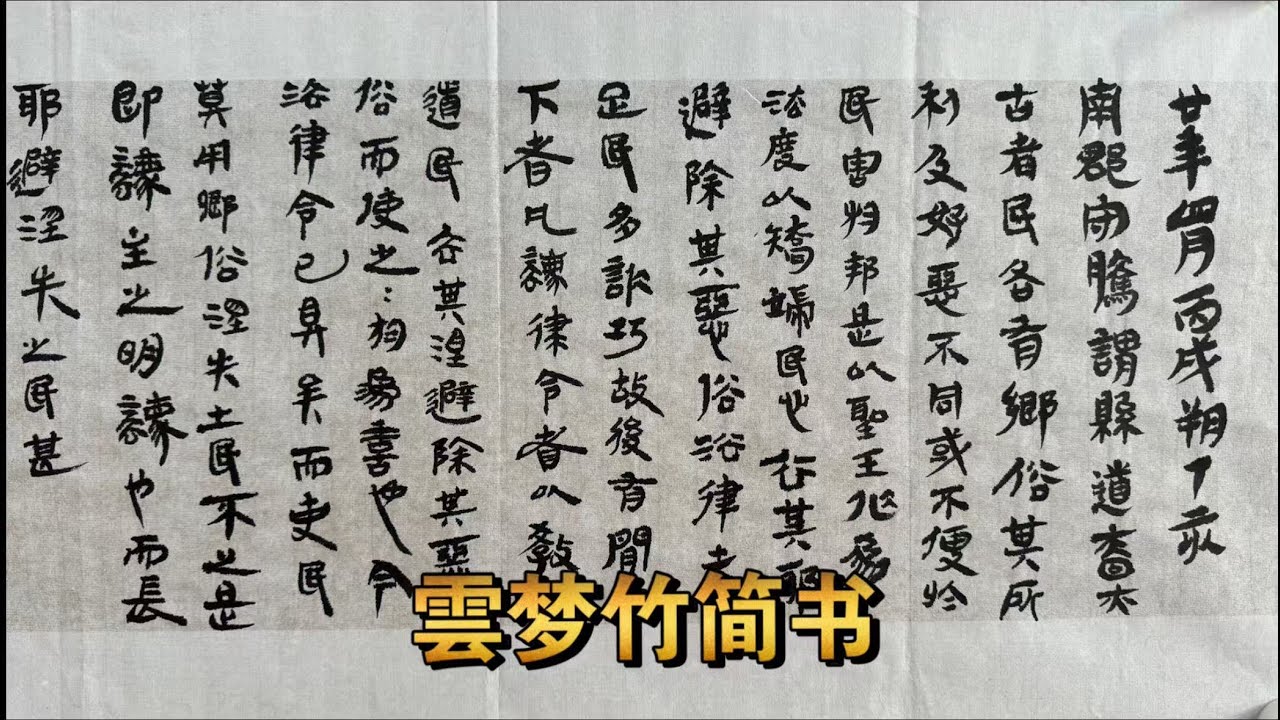 廿年四月丙戌朔丁亥
南郡守騰謂縣道嗇夫
古者民各有鄉俗其所
利及好惡不同或不便於
民害於邦是以聖王作為
法度以矯端民心去其邪
避除其惡俗法律未
足民多詐巧故後有間
下者凡法律令者以教
道民去其淫避除其惡
俗而使之：於為善也今
法律令已具矣而吏民
莫用鄉俗淫失之民不止是
即法主之明法也而長
邪避淫失之民甚
雲梦竹简书